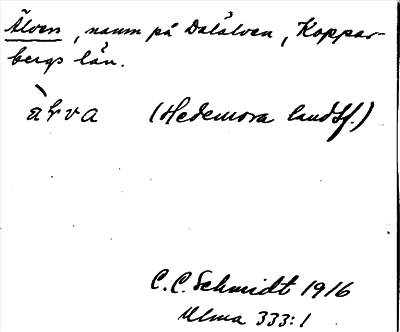 Älven, namn på Dalälven, Koppar-
bergs län.
(Hedemora landsf.)
C.C. Schmidt 1916
Ulma 333:1